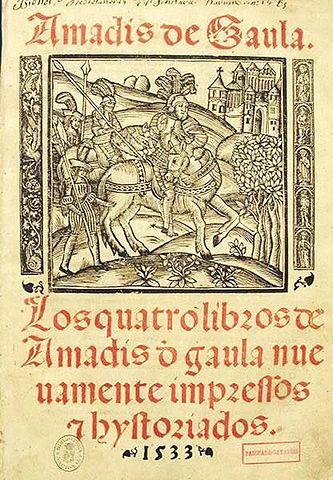 Amadis de Gaula.
Los quatro libros de
Amadis đ gaula nue
uamente impressos
⁊ hystoriados.
1533